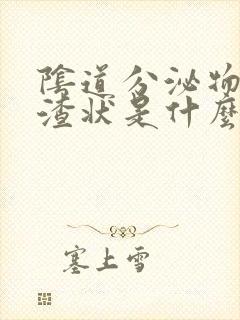 陰道分泌物
渣狀是什麼
塞上雪